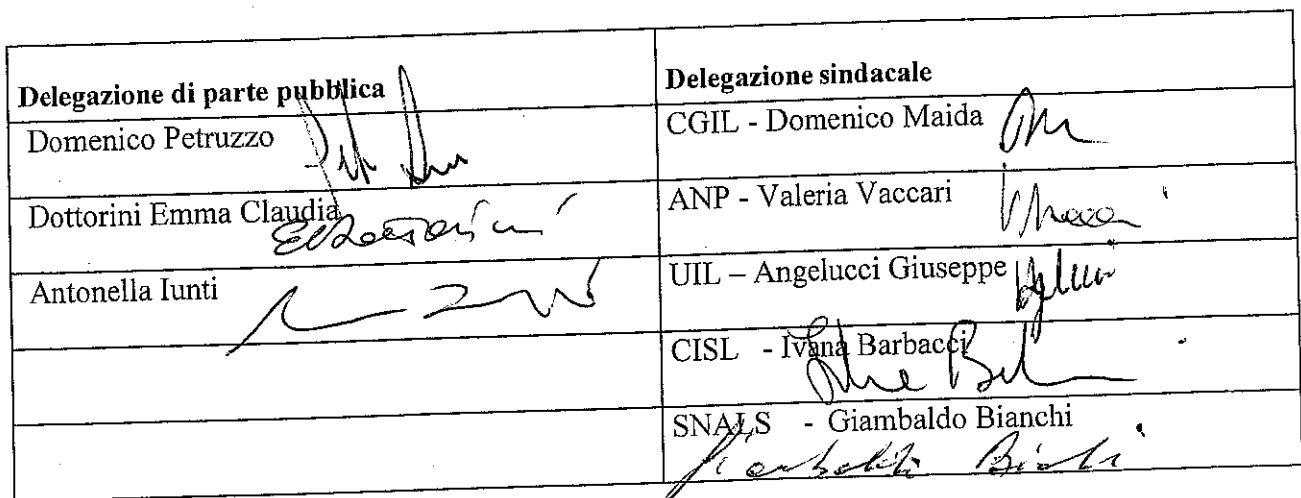 Delegazione di parte pubblica
Delegazione sindacale
Domenico Petruzzo
CGIL - Domenico Maida
Dottorini Emma Claudia
ANP - Valeria Vaccari
Antonella Iunti
UIL – Angelucci Giuseppe
CISL - Ivana Barbacci
SNALS - Giambaldo Bianchi
Giambaldo Bianchi